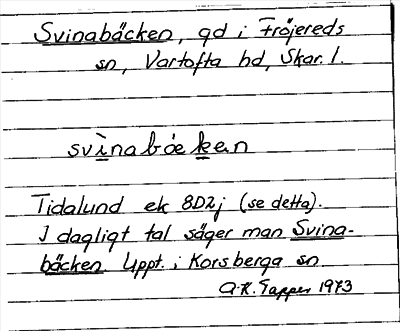 Svinabäcken, gd i Fröjereds
sn, Vartofta hd, Skar. l.
svinabóeken
Tidalund ek 8D2j (se detta).
I dagligt tal säger man Svina-
bäcken. Uppt. i Korsberga sn
A.K. Tapper 1973